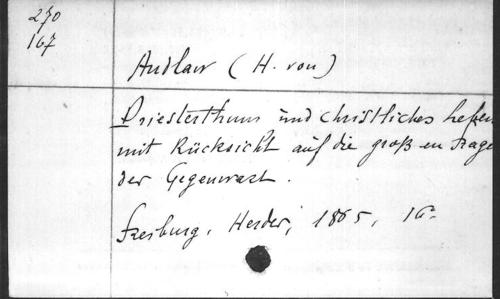 270
167
Andlaw (H. von)
Priesterthum und christliches Leben
mit Rücksicht auf die großen Frage
der Gegenwart.
Freiburg, Herder, 1865, 16°